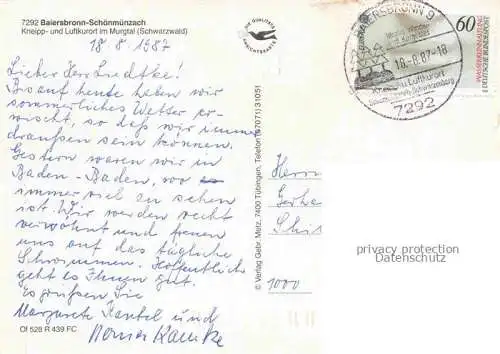 7292 Baiersbronn-Schönmünzach
Kneipp- und Luftkurort im Murgtal (Schwarzwald)
18. 8. 1987
Lieber Herr Liedtke!
Bis auf heute haben wir
sommerliches Wetter er-
wischt, so daß wir immer
draußen sein können.
Gestern waren wir in
Baden-Baden, wo
immer viel zu sehen
ist. Wir werden recht
verwöhnt und freuen
uns auf das tägliche
Schwimmen. Hoffentlich
geht es Ihnen gut.
Es grüßen Sie
Margarete und
Of 528 R 439 FC
DIE QUALITÄTS
© Verlag Gebr. Metz, 7400 Tübingen, Telefon (07071) 31051
BAIERSBRONN 9
18.-8.87-18
Luftkurort
7292
60
DEUTSCHE BUNDESPOST
Herrn
Gerha
1000
privacy protection
Datenschutz